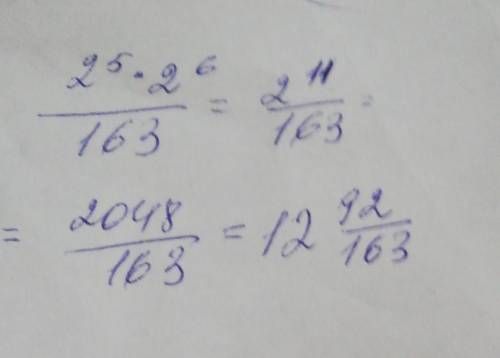 2⁵·2⁶/163 = 2¹¹/163 =
= 2048/163 = 12 92/163